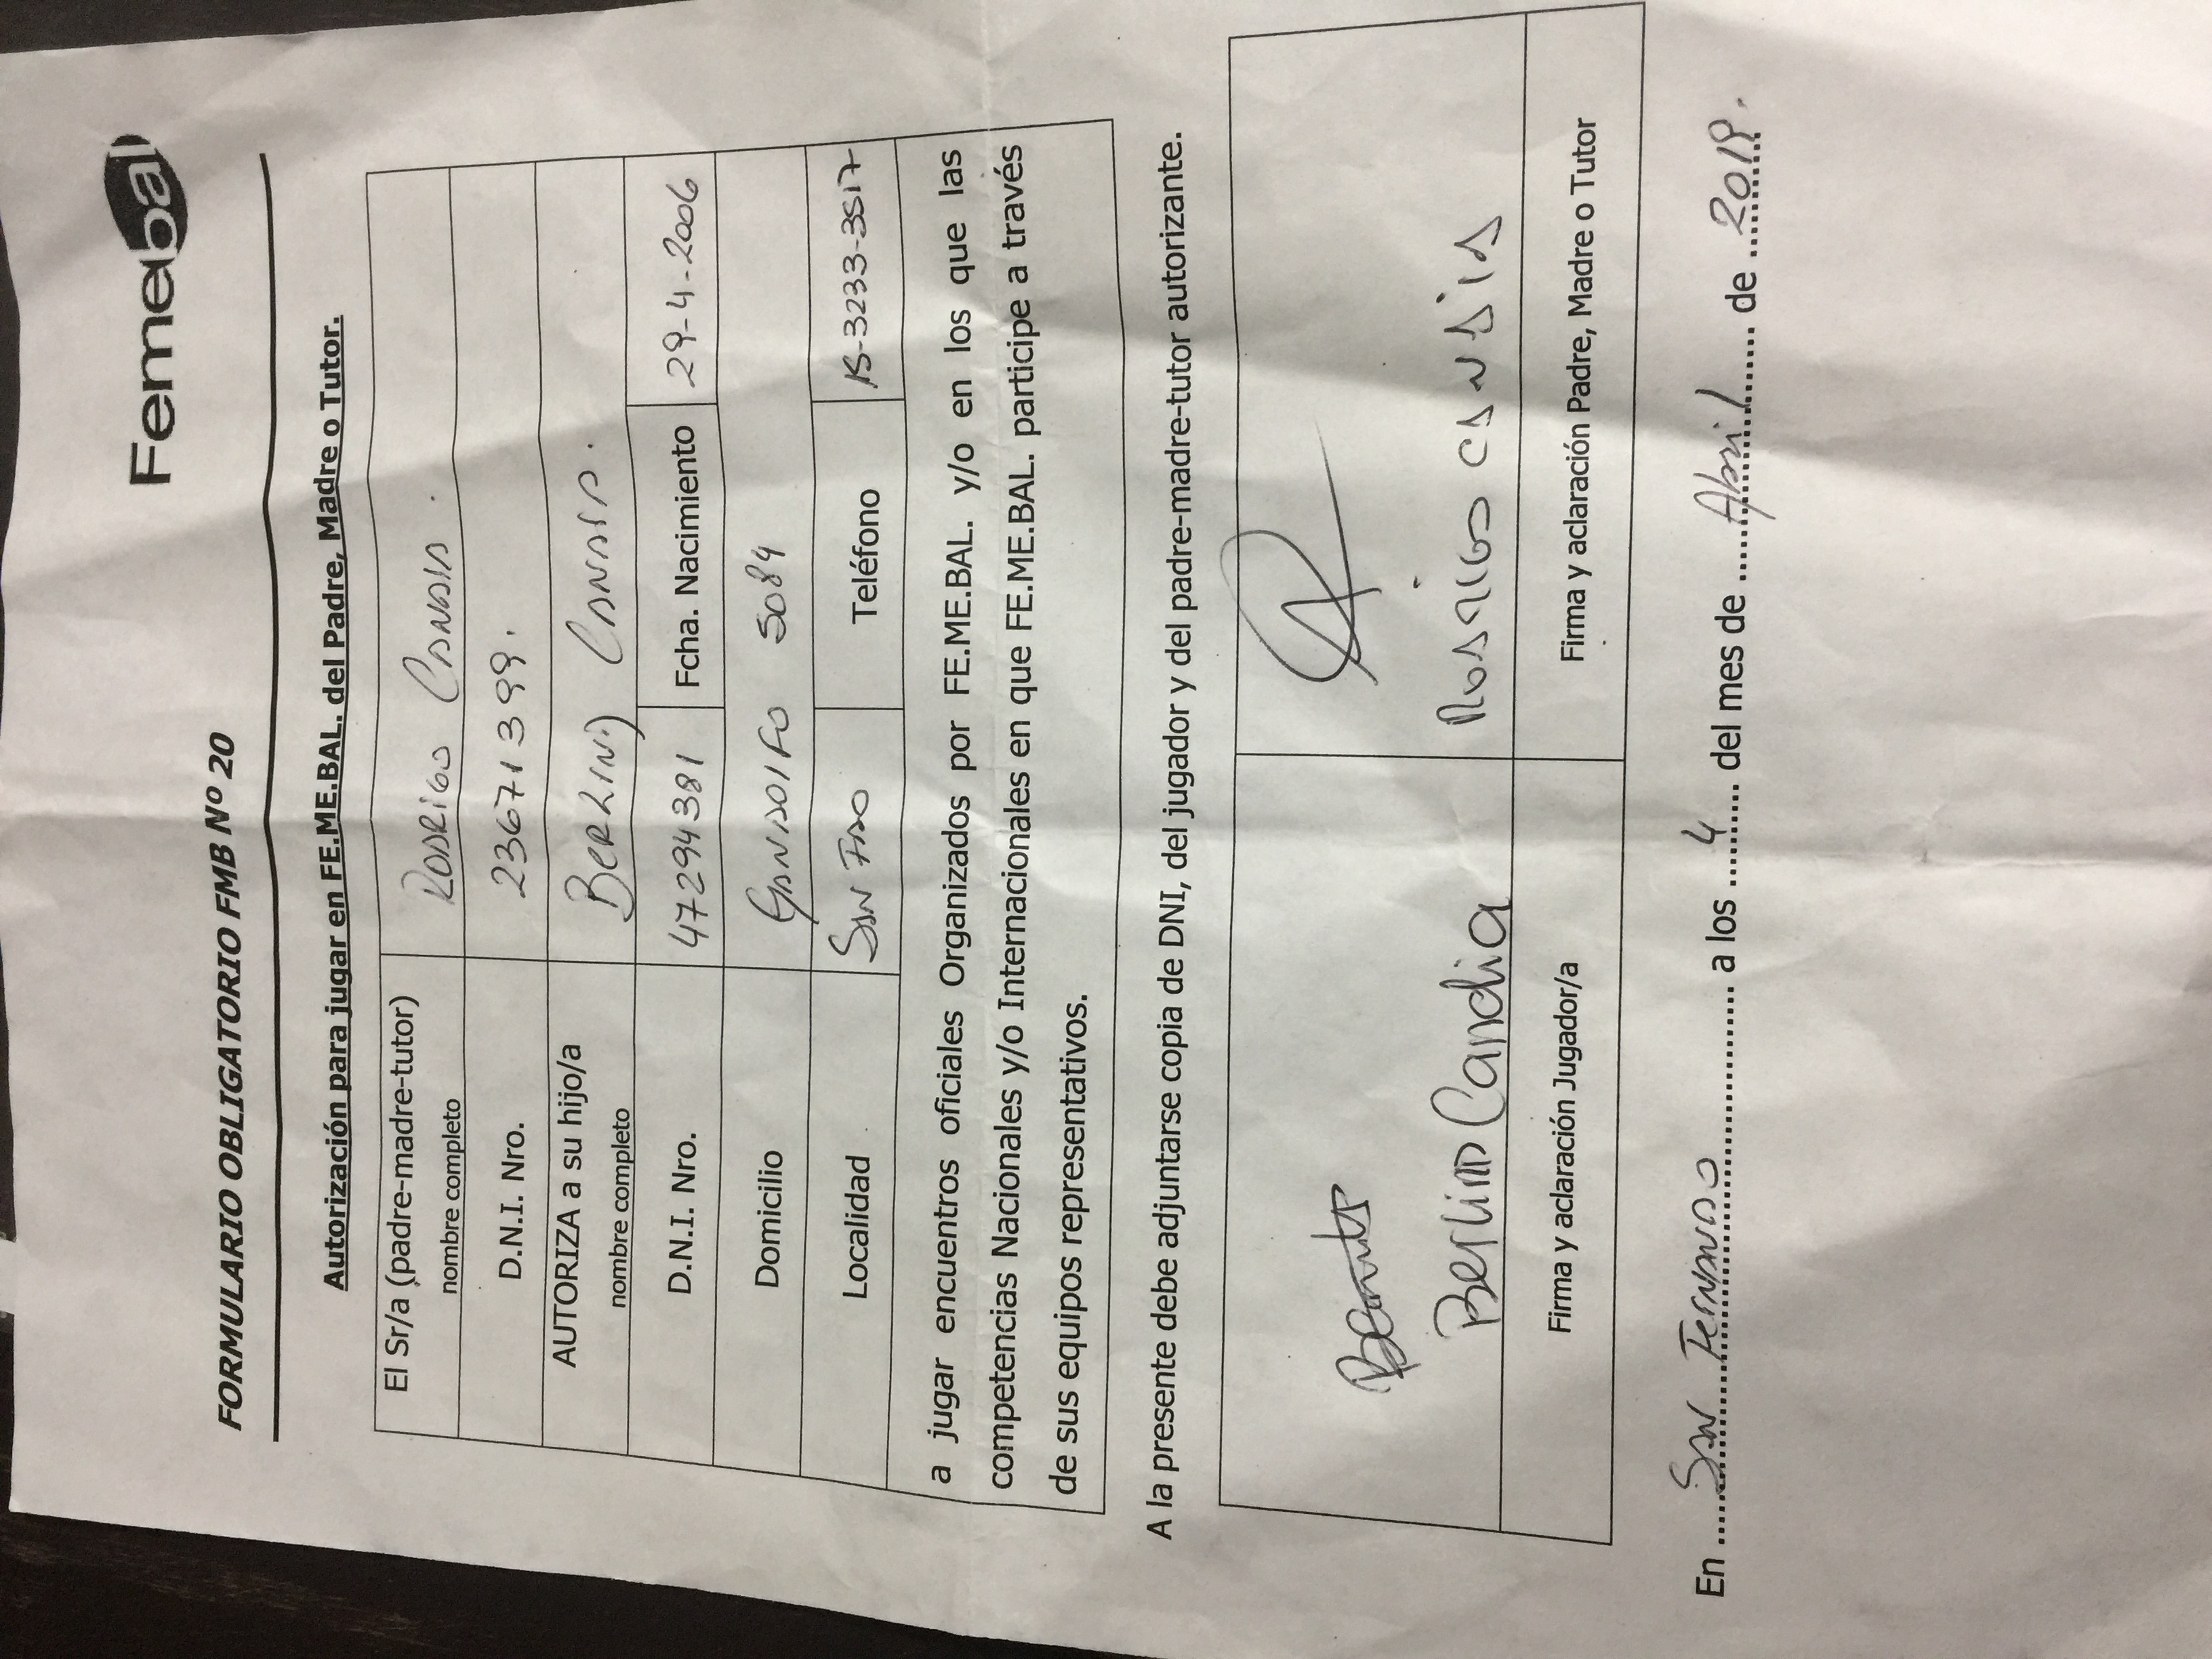 Femebal
FORMULARIO OBLIGATORIO FMB Nº 20
Autorización para jugar en FE.ME.BAL. del Padre, Madre o Tutor.
El Sr/a (padre-madre-tutor) Rodrigo Candia.
nombre completo
D.N.I. Nro. 23671399.
AUTORIZA a su hijo/a Candia.
nombre completo
D.N.I. Nro. 47294381 Fcha. Nacimiento 29-4-2006
Domicilio Gandolfo 5084
Localidad San Fdo Teléfono 15-3233-3517
a jugar encuentros oficiales Organizados por FE.ME.BAL. y/o en los que las
competencias Nacionales y/o Internacionales en que FE.ME.BAL. participe a través
de sus equipos representativos.
A la presente debe adjuntarse copia de DNI, del jugador y del padre-madre-tutor autorizante.
Candia Rodrigo Candia
Firma y aclaración Jugador/a Firma y aclaración Padre, Madre o Tutor
En San Fernando a los 4 del mes de Abril de 2019.